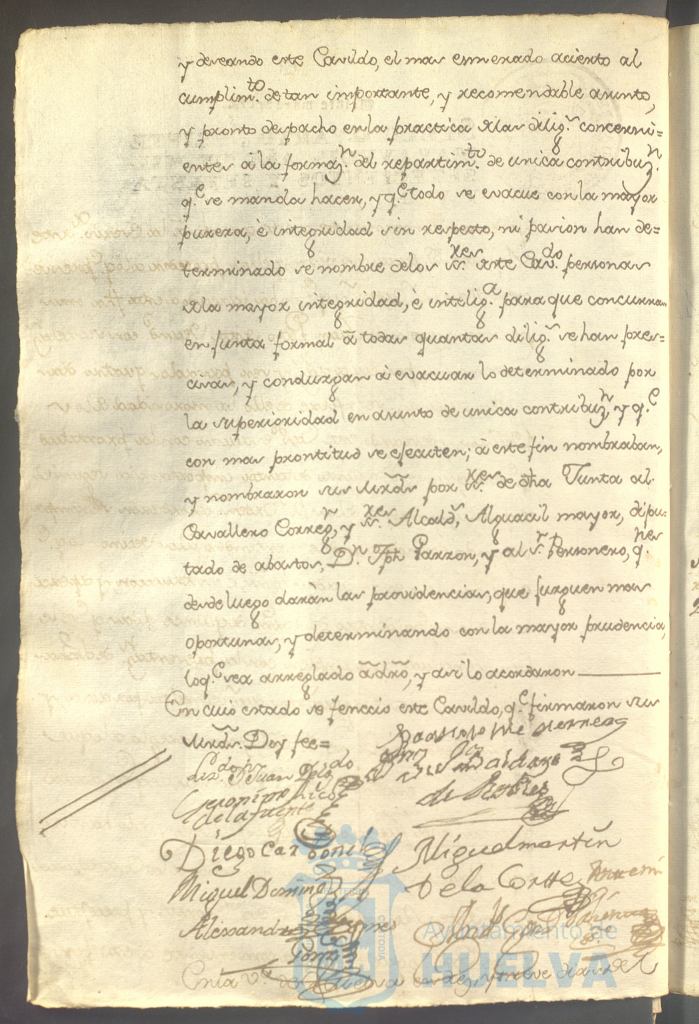 y deseando este Cavildo, el mas esmerado acierto al
cumplim.to de tan importante, y recomendable asunto,
y pronto despacho en la practica de las dilig.s concerni=
entes a la formaz.n del repartim.to de unica contribuz.n
q.e se manda hacer, y q.e todo se evacue con la mayor
pureza, è integridad sin respecto, ni pasion han de=
terminado se nombre de los ss.res de este Cav.do personas
de la mayor integridad, è intelig.a para que concurran
en Junta formal à todas quantas dilig.s se han pres=
, y conduzgan à evacuar lo determinado por
la superioridad en asunto de unica contribuz.n y q.e
con mas prontitud se executen; à este fin nombraban,
y nombraron sus mrds. por ss.res de dha Junta al
Cavallero Correg.r, y ss.res Alcalds, Alguacil mayor, dipu=
tado de abastos, D.n Jph Garzon, y al s.r Personero, q.nes
desde luego daràn las providencias, que juzguen mas
oportunas, y determinando con la mayor prudencia,
loq.e sea arreglado à dro, y asi lo acordaron
En cuio estado se fenecio este Cavildo, q.e firmaron sus
mrds. Doy fee=
Liz.do D.n Juan
Geronimo
de la fuente
de Robles
Diego Car
Miguel martin
De la Corte
Miguel Doming
Alessandr
Ayuntamiento de
HUELVA
En la V.a de Huelva en diez y nueve dias de